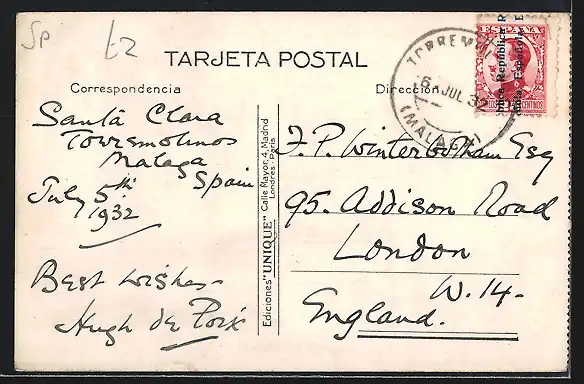 Sp
L2
TARJETA POSTAL
Correspondencia
Dirección
TORREMOLINOS
6 JUL 32
(MALAGA)
ESPAÑA
República
Española
CENTIMOS
Santa Clara
Torremolinos
Malaga
Spain
July 5th
1932
Best wishes-
Hugh de Poix
Ediciones "UNIQUE" Calle Mayor, 4, Madrid
Londres - Paris
F. P. Winterbotham Esq
95. Addison Road
London
W. 14-
England.